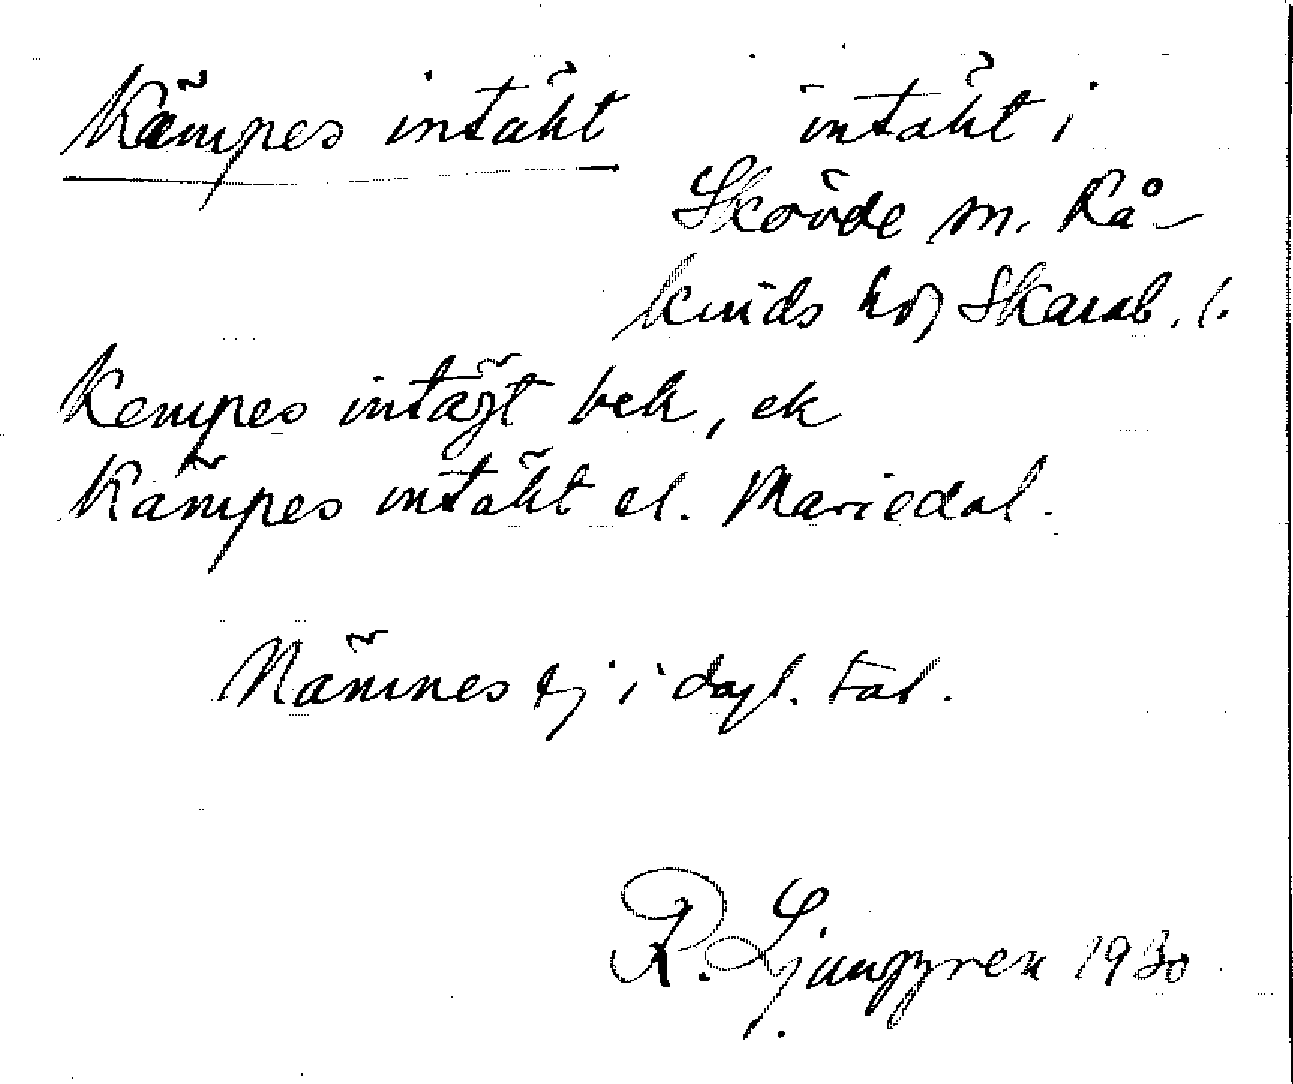 Kämpes intäkt intäkt i
Skövde sn. Kå-
kinds hd, Skarab. l.
Kempes intägt bek, ek
Kämpes intäkt el. Mariedal.
Nämnes ej i dagl. tal.
R. Ljunggren 1930